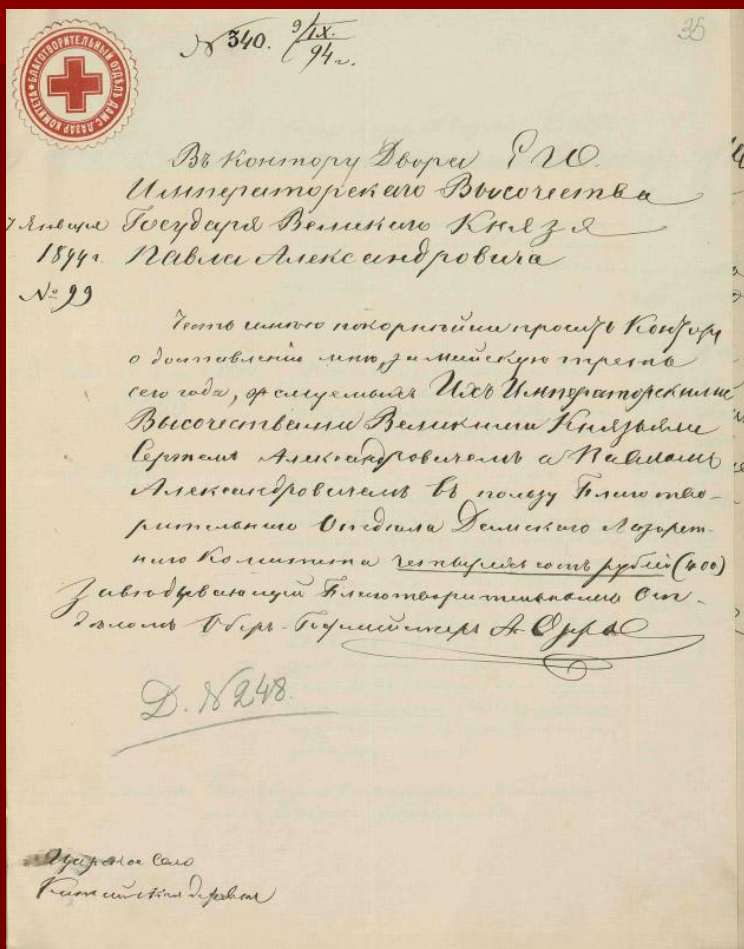 БЛАГОТВОРИТЕЛЬНЫЙ ОТДѢЛЪ ДАМС. ЛАЗАР. КОМИТЕТА
№ 340. 9/IX. 94 г.
35
Въ Контору Двора ЕГО
Императорскаго Высочества
Государя Великаго Князя
Павла Александровича
7 Января
1894 г.
№ 99
Честь имѣю покорнѣйше просить Контору
о доставленіи мнѣ, за майскую треть
сего года, жалуемыхъ Ихъ Императорскими
Высочествами Великими Князьями
Сергѣемъ Александровичемъ и Павломъ
Александровичемъ въ пользу Благотво-
рительнаго Отдѣла Дамскаго Лазарет-
наго Комитета четыреста рублей (400)
Завѣдывающій Благотворительнымъ От-
дѣломъ Оберъ-Гофмейстеръ А.
Д. № 248.
Царское Село
Китайская деревня